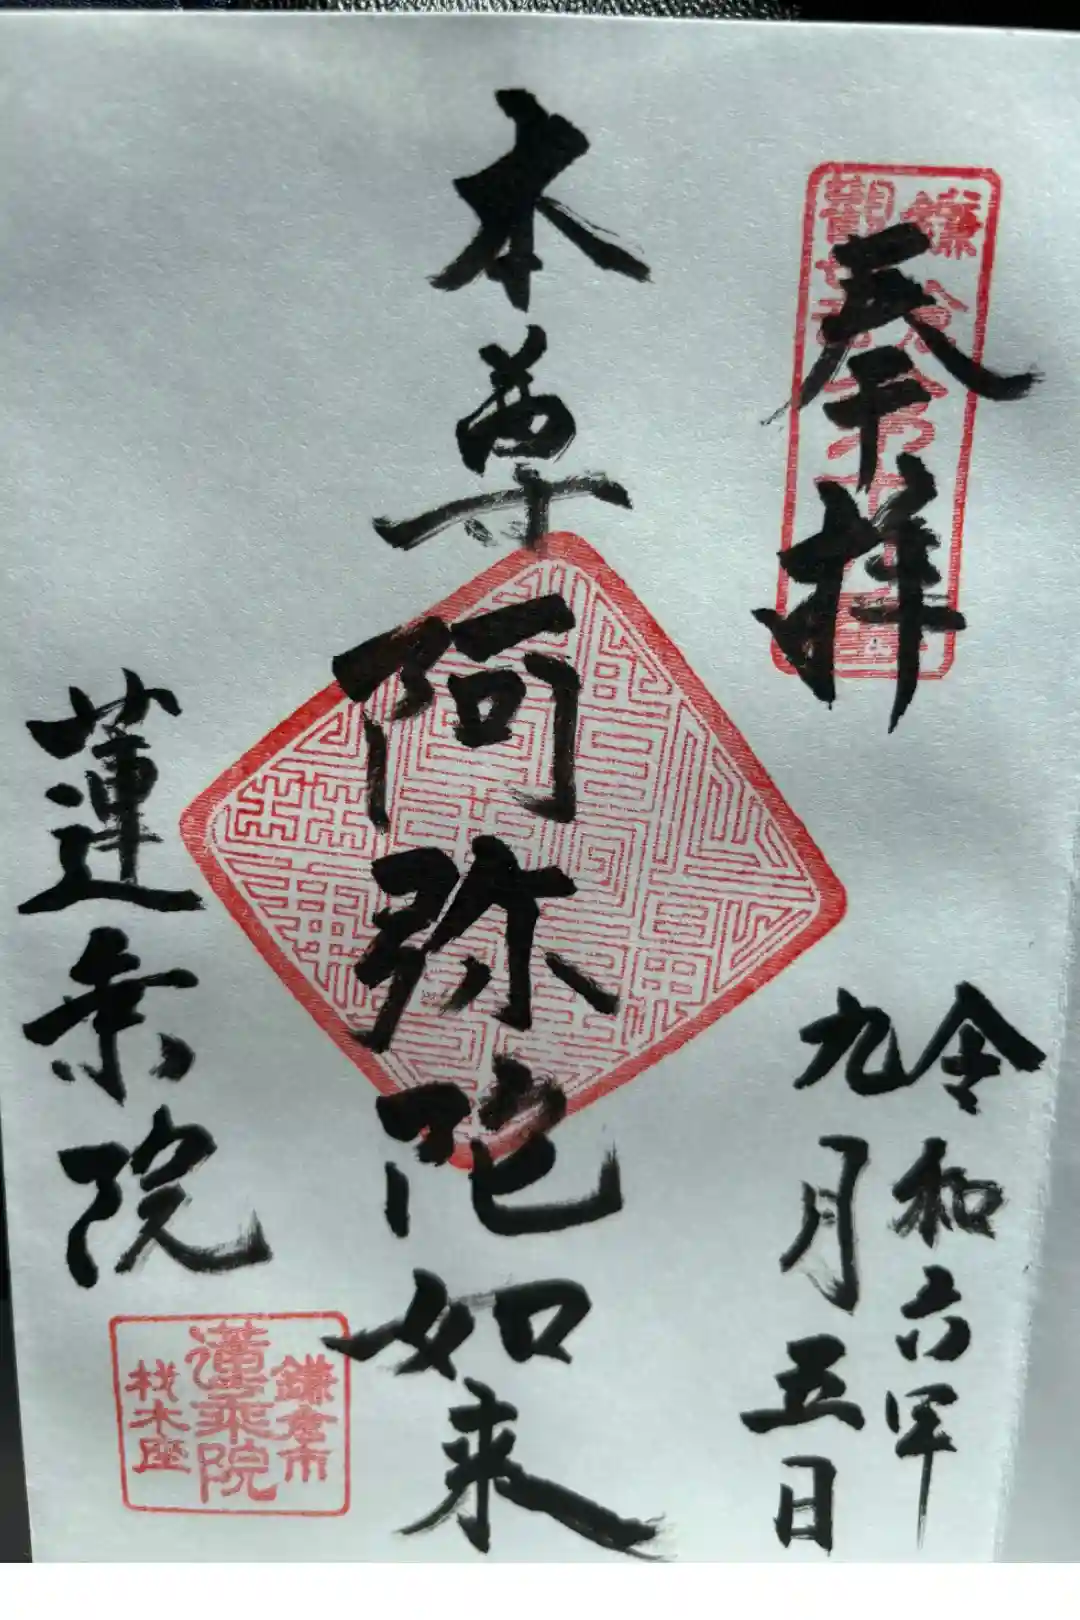 奉拝
令和六年
九月五日
本尊
阿弥陀如来
蓮乗院
鎌倉市
蓮乗院
材木座